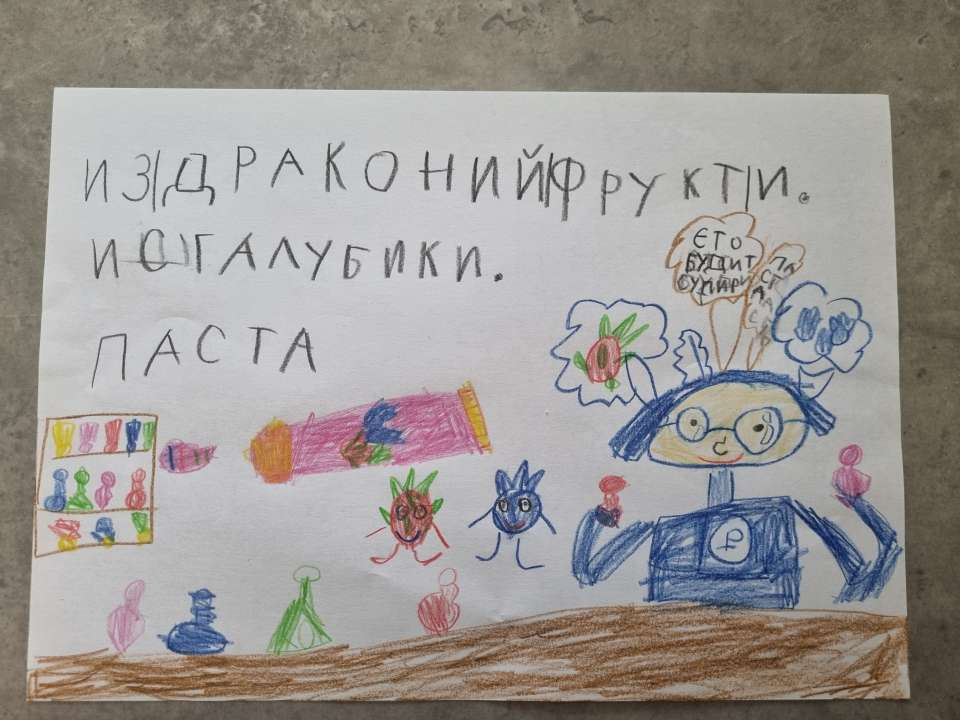 ИЗ ДРАКОНИЙ ФРУКТ И.
И С ГАЛУБИКИ.
ПАСТА
ЄТО
БУДИТ
СУПИР